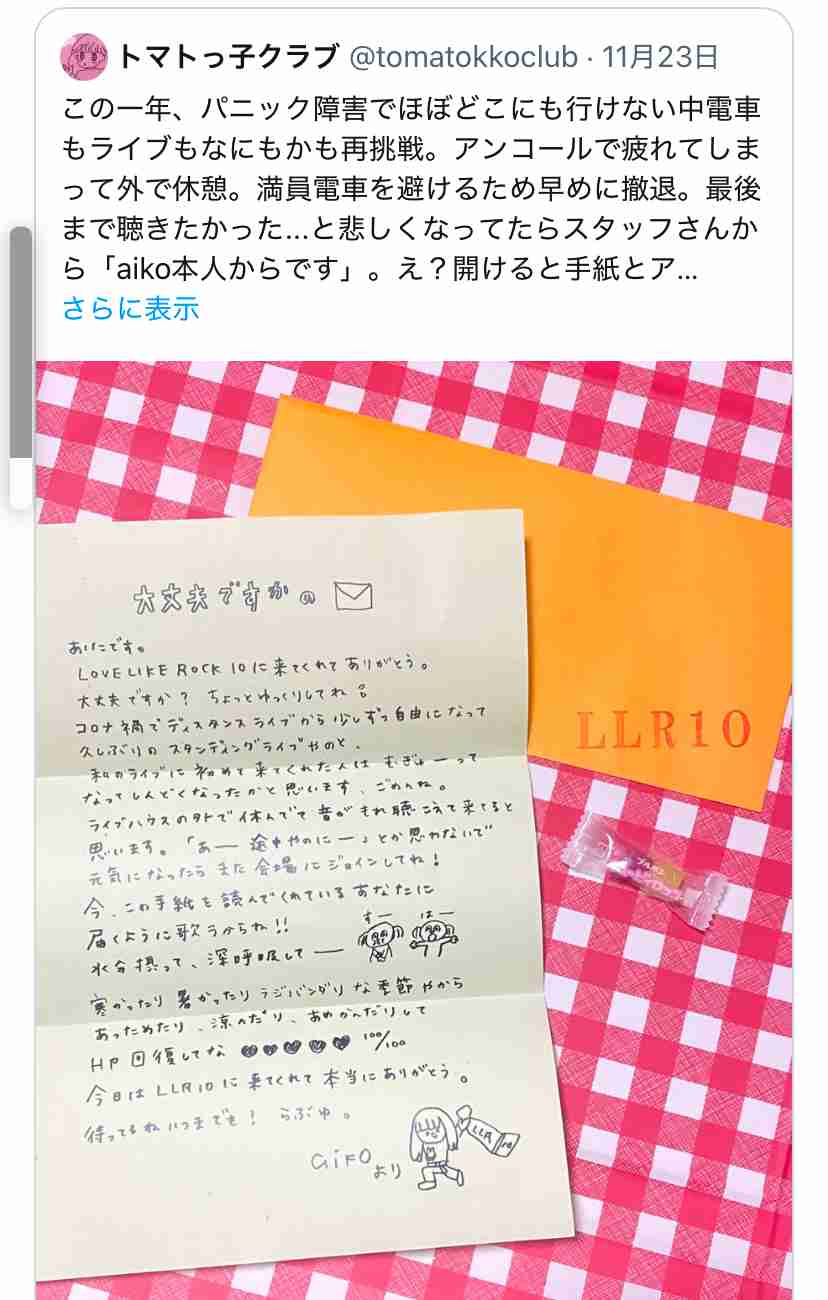 トマトっ子クラブ @tomatokkoclub · 11月23日
この一年、パニック障害でほぼどこにも行けない中電車
もライブもなにもかも再挑戦。アンコールで疲れてしま
って外で休憩。満員電車を避けるため早めに撤退。最後
まで聴きたかった...と悲しくなってたらスタッフさんか
ら「aiko本人からです」。え？開けると手紙とア...
さらに表示
大丈夫ですかの
あいこです。
LOVE LIKE ROCK 10に来てくれてありがとう。
大丈夫ですか？ ちょっとゆっくりしてね
コロナ禍でディスタンスライブから少しずつ自由になって
久しぶりのスタンディングライブやのと、
私のライブに初めて来てくれた人はむぎゅーって
なってしんどくなったかと思います、ごめんね。
ライブハウスの外で休んでて音がもれ聴こえて来てると
思います。「あー途中やのにー」とか思わないで
元気になったらまた会場にジョインしてね！
今、この手紙を読んでくれているあなたに
届くように歌うからね!!
水分摂って、深呼吸してー
すー はー
寒かったり暑かったりラジバンダリな季節やから
あっためたり、涼んだり、あめかんだりして
HP回復してな 100/100
今日はLLR10に来てくれて本当にありがとう。
待ってるねいつまでも！ らぶゆ。
aikoより
LLR 10
LLR10